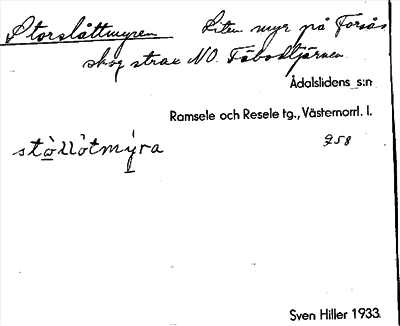 Storslåttmyren Liten myr på Forsås
skog strax NO. Fäbodtjärnen.
Ådalslidens s:n
Ramsele och Resele tg., Västernorrl. l.
958
stòllòtmýra
Sven Hiller 1933.